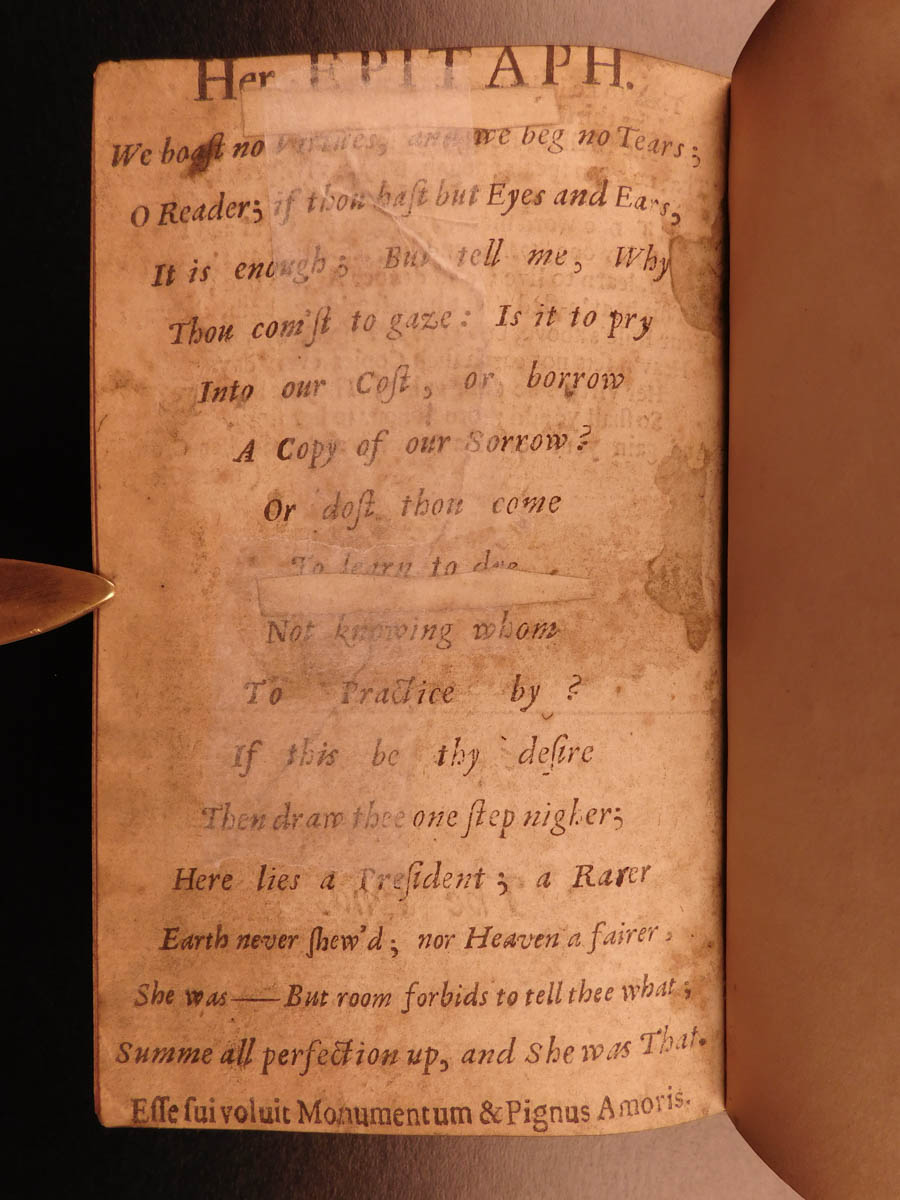 Her EPITAPH.
We boaſt no Virtues, and we beg no Tears;
O Reader; if thou haſt but Eyes and Ears,
It is enough; But tell me, Why
Thou com'ſt to gaze: Is it to pry
Into our Coſt, or borrow
A Copy of our Sorrow?
Or doſt thou come
To learn to
Not knowing whom
To Practice by?
If this be thy deſire
Then draw thee one ſtep nigher;
Here lies a Preſident; a Rarer
Earth never ſhew'd; nor Heaven a fairer,
She was—But room forbids to tell thee what;
Summe all perfection up, and She was That.
Eſſe ſui voluit Monumentum & Pignus Amoris.